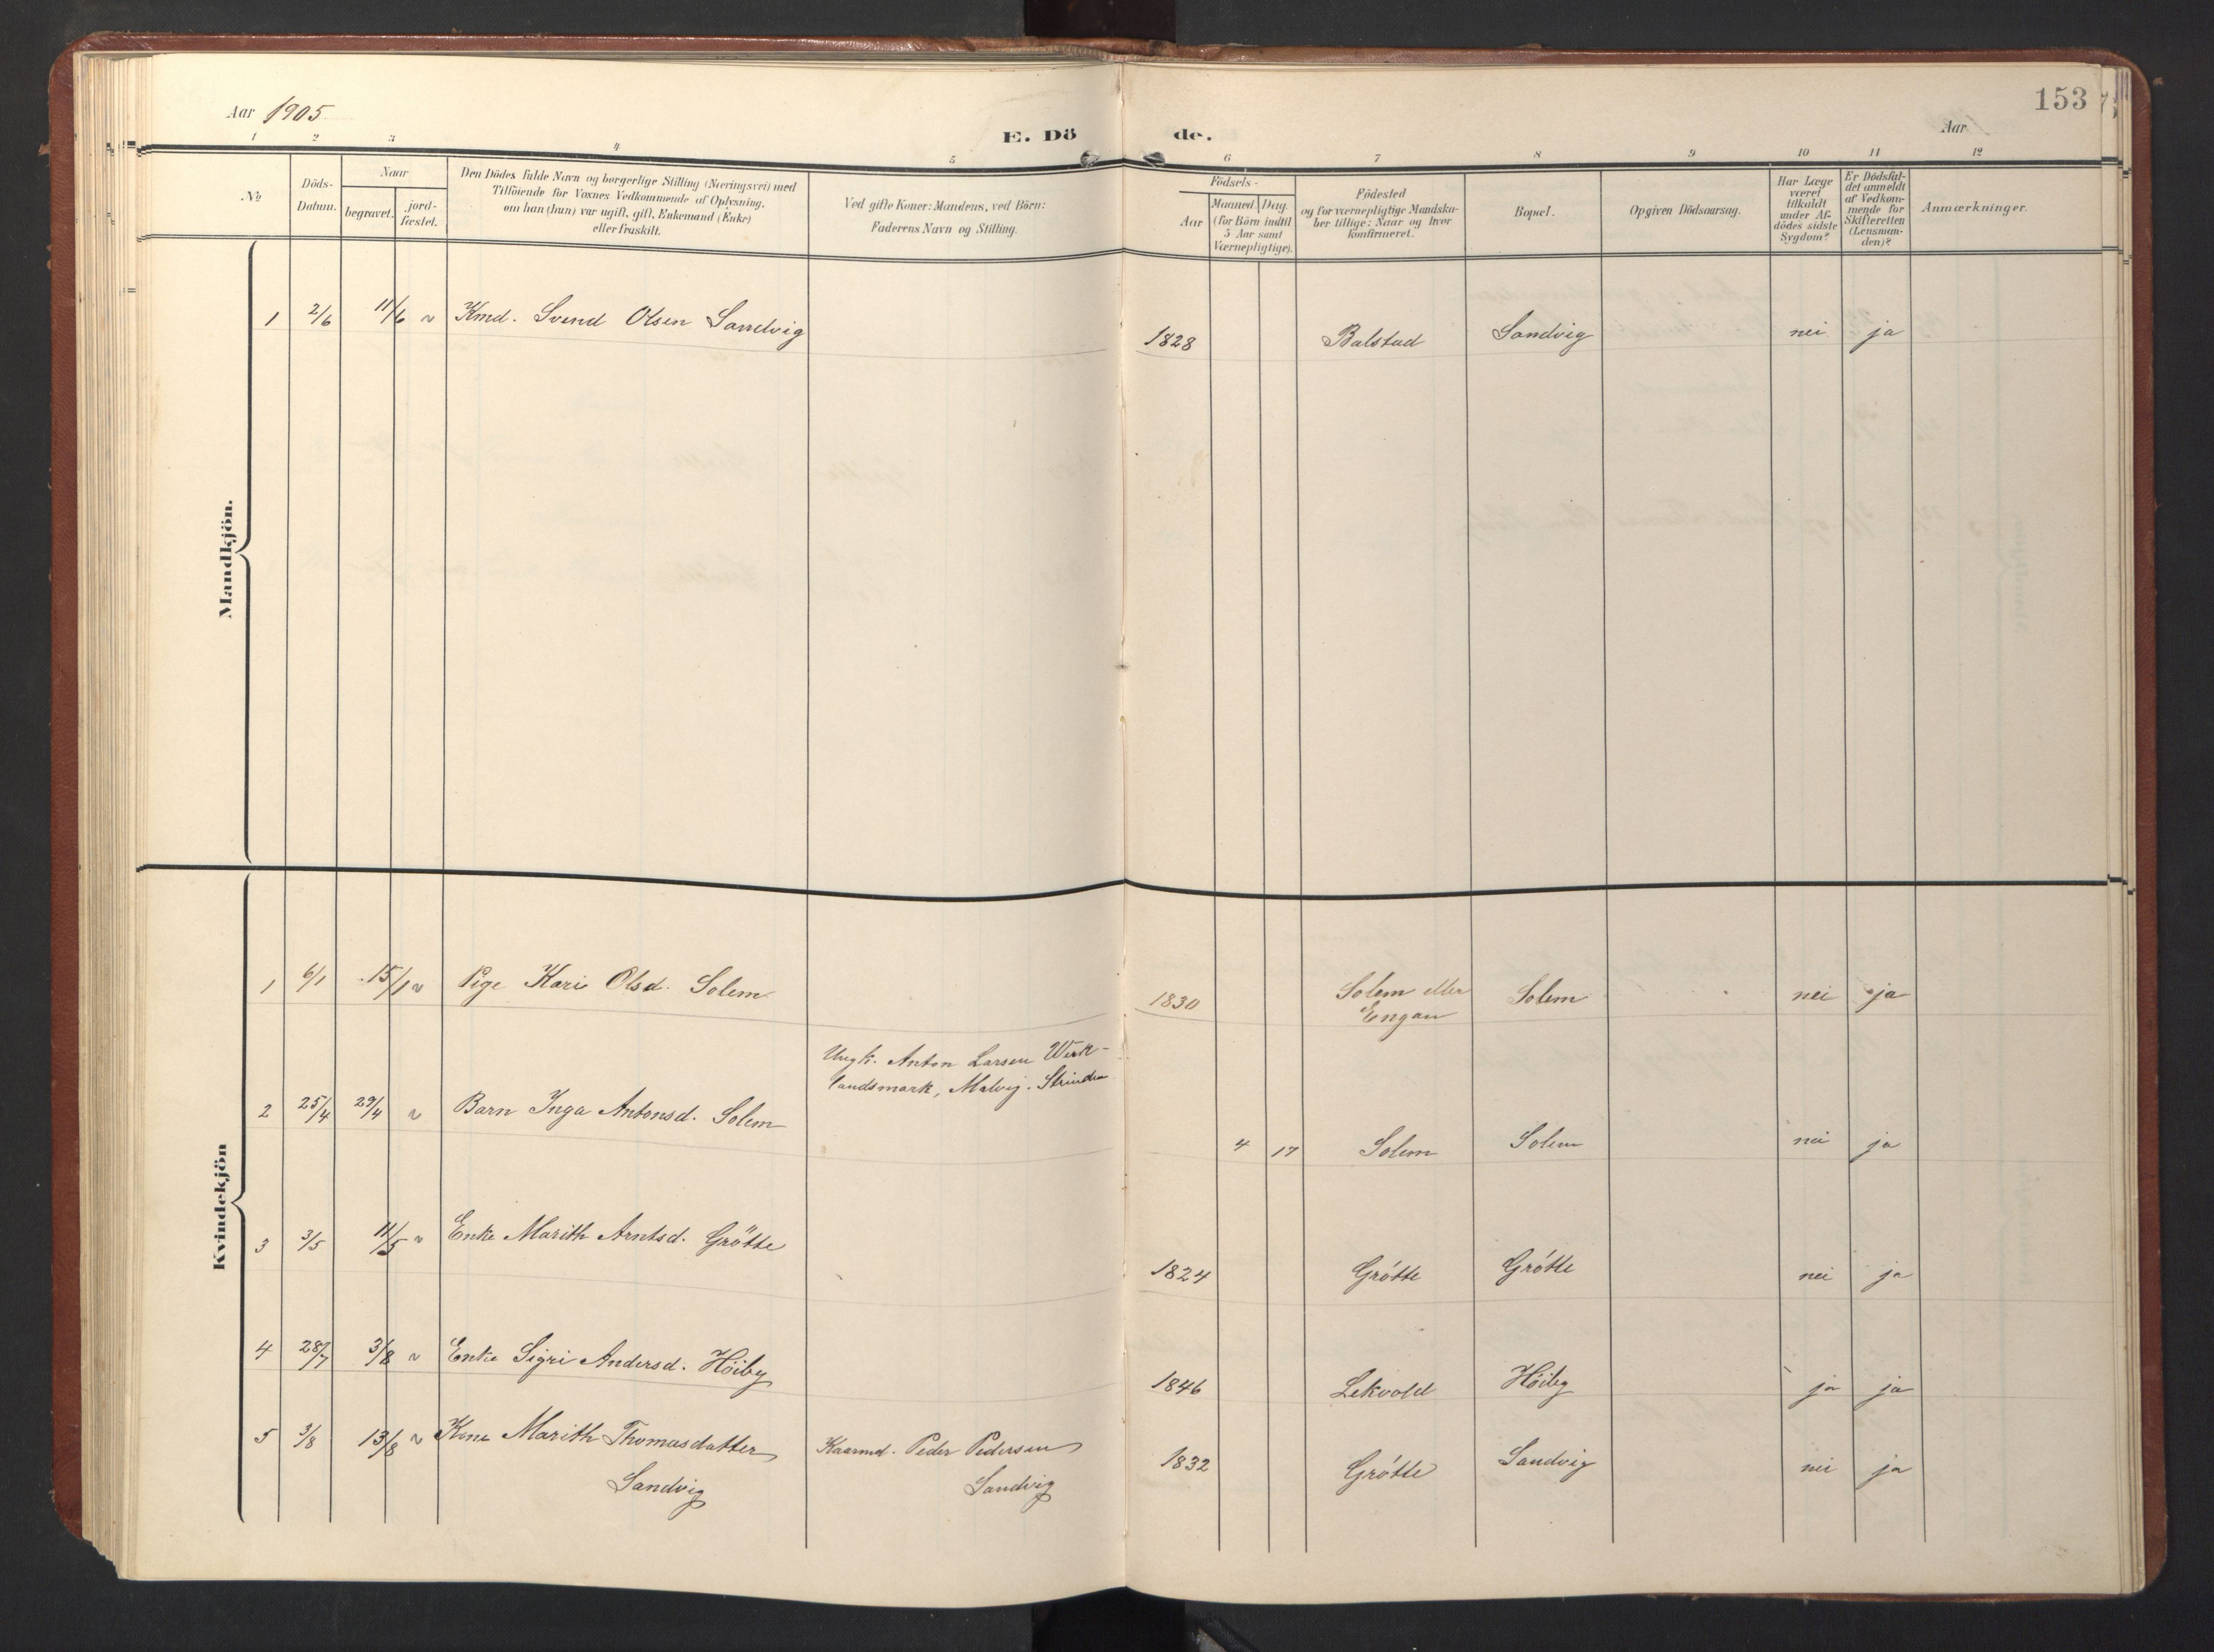 153
Aar 1905
E. Dö de.
Aar
1 2 3 4 5 6 7 8 9 10 11 12
No
Döds-
Datum.
Naar
begravet.
jord-
fæstet.
Den Dödes fulde Navn og borgerlige Stilling (Næringsvei) med
Tilföiende for Voxnes Vedkommende af Oplysning,
om han (hun) var ugift, gift, Enkemand (Enke)
eller fraskilt.
Ved gifte Koner: Mandens, ved Börn:
Faderens Navn og Stilling.
Födsels-
Aar
Maaned Dag
(for Börn indtil
5 Aar samt
Værnepligtige).
Födested
og for værnepligtige Mandska-
ber tillige: Naar og hvor
konfirmeret.
Bopæl.
Opgiven Dödsaarsag.
Har Læge
været
tilkaldt
under Af-
dödes sidste
Sygdom?
Er Dödsfal-
det anmeldt
af Vedkom-
mende for
Skifteretten
(Lensman-
den)?
Anmærkninger.
Mandkjön.
1 2/6 11/6 ~ Kmd. Svend Olsen Sandvig 1828 Balstad Sandvig nei ja
Kvindekjön
1 6/1 15/1 ~ Pige Kari Olsd. Solem 1830 Solem eller Solem nei ja
Engan
Ungk. Anton Larsen
landsmark, Malvig. Strinden
2 25/4 29/4 ~ Barn Inga Antonsd. Solem 4 17 Solem Solem nei ja
3 3/5 11/5 ~ Enke Marith Arntsd. Grötte 1824 Grötte Grötte nei ja
4 28/7 3/8 ~ Enke Sigri Andersd. Höiby 1846 Lekvold Höiby ja ja
5 3/8 13/8 ~ Kone Marith Thomasdatter Kaarmd. Peder Pedersen 1832 Grötte Sandvig nei ja
Sandvig Sandvig